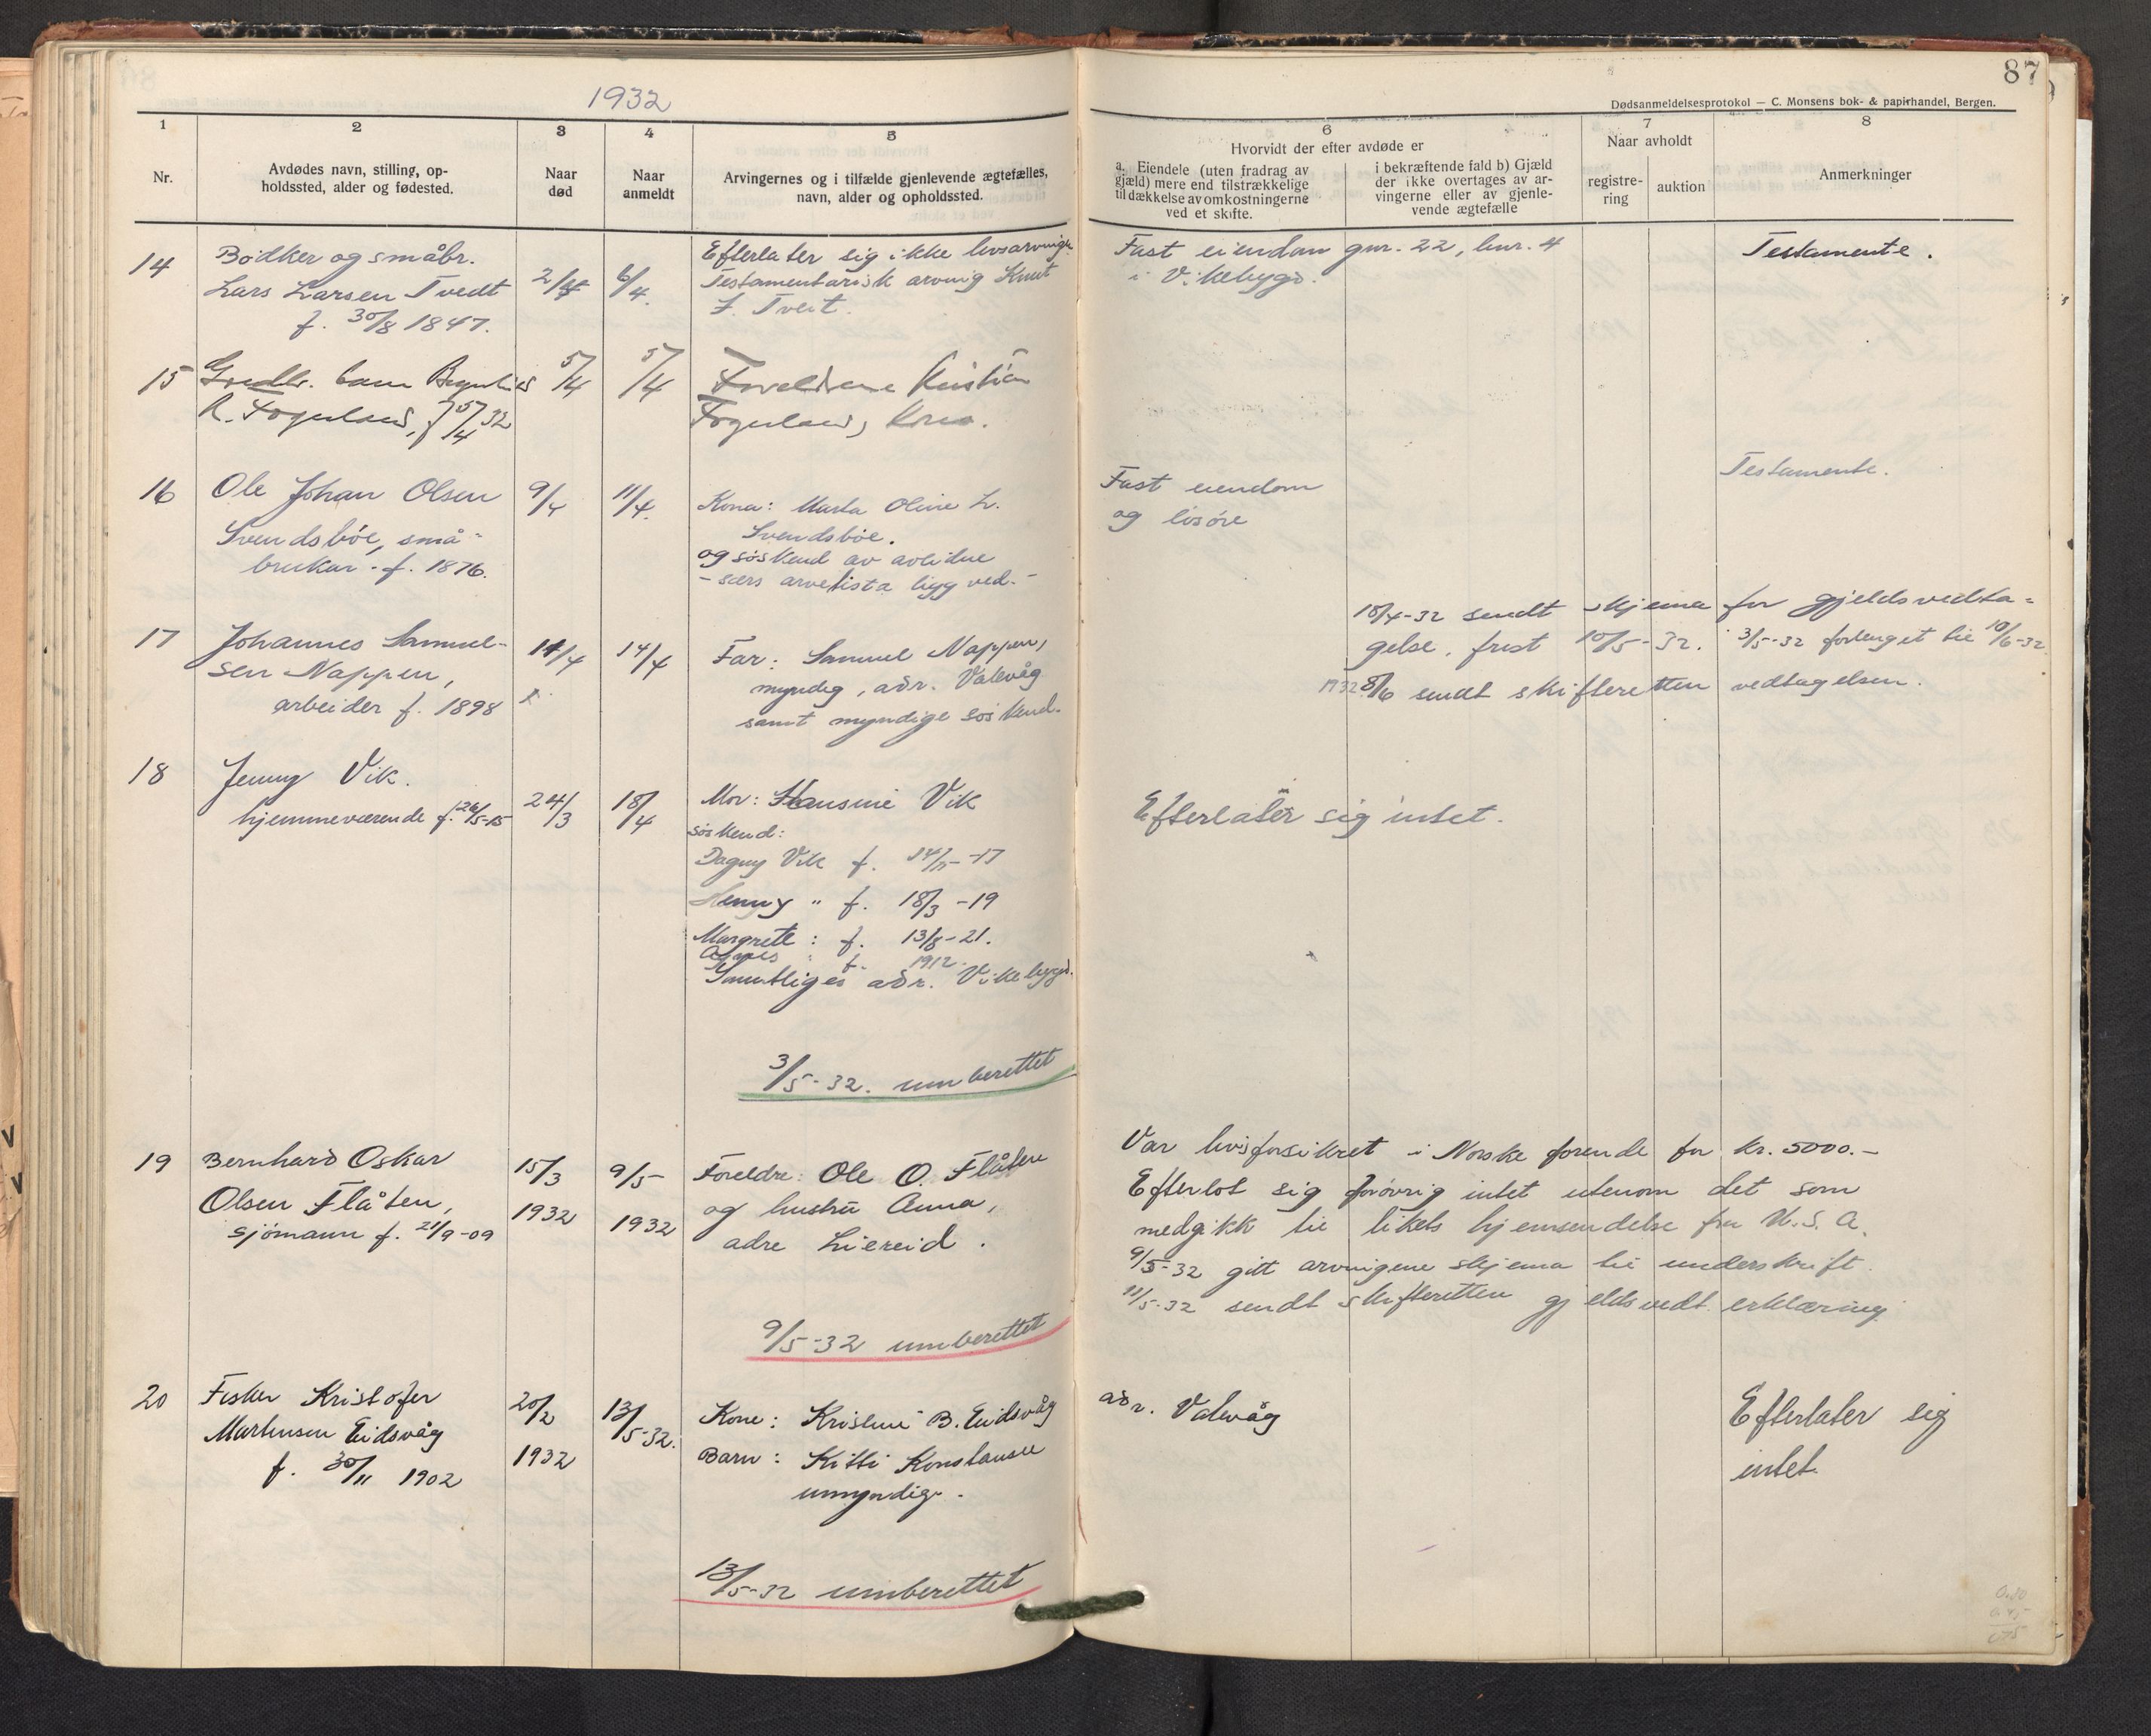 1932
87
Dødsanmeldelsesprotokol — C. Monsens bok- & papirhandel, Bergen.
1
2
3
4
5
6
7
8
Nr.
Avdødes navn, stilling, op-
holdssted, alder og fødested.
Naar
død
Naar
anmeldt
Arvingernes og i tilfælde gjenlevende ægtefælles,
navn, alder og opholdssted.
Hvorvidt der efter avdøde er
a. Eiendele (uten fradrag av
gjæld) mere end tilstrækkelige
til dækkelse av omkostningerne
ved et skifte.
i bekræftende fald b) Gjæld
der ikke overtages av ar-
vingerne eller av gjenle-
vende ægtefælle
Naar avholdt
registre-
ring
auktion
Anmerkninger
14
Bödker og småbr.
Lars Larsen Tvedt
f. 30/8 1847.
2/4
6/4
Efterlater sig ikke livsarving
Testamentarisk arving Knut
L. Tveit.
Fast eiendom gnr. 22, bnr. 4
i Vikebygd.
Testamente.
15
barn
5/4 32
5/4
5/4
Foreldrene Kristian
16
Ole Johan Olsen
Svendsböe, små-
brukar. f. 1876.
9/4
11/4
Kona: Marta Oline L.
Svendsböe.
og söskend av avlidne
- særs arvelista ligg ved. -
Fast eiendom
og lösöre
Testamente.
17
Johannes Samuel-
sen Nappen,
arbeider f. 1898
11/4
14/4
Far: Samuel Nappen,
myndig, adr. Valevåg
samt myndige söskend.
18/4-32 sendt skjema for gjeldsvedta-
gelse, frist 10/5-32. 3/5-32 forlenget til 10/6-32
1932 8/6 sendt skifteretten vedtagelsen.
18
Jenny Vik.
hjemmeværende f. 26/5-15
24/3
18/4
Mor: Hansine Vik
söskend:
Dagny Vik f. -17
Henny " f. 18/3 -19
Margrete : f. 13/8-21.
Agnes " f. 1912.
Samtliges adr. Vikebygd.
Efterlater sig intet.
3/5-32. innberettet
19
Bernhard Oskar
Olsen Flåten,
sjömann f. 21/9-09
15/3
1932
9/5-
1932
Foreldre: Ole O. Flåten
og hustru Anna,
adre Liereid.
Var livsforsikret i Norske forende for kr. 5000.-
Efterlot sig forövrig intet utenom det som
medgikk til likets hjemsendelse fra U.S.A.
9/5-32 gitt arvingene skjema til underskrift.
11/5-32 sendt skifteretten gjeldsvedt. erklæring.
9/5-32 innberettet
20
Fisker Kristofer
Martinsen Eidsvåg
f. 30/11 1902
20/2
1932
13/5-32.
Kone: Kristine B. Eidsvåg
Barn: Kitti Konstanse
umyndig.
adr. Valevåg
Efterlater sig
intet.
13/5-32 innberettet